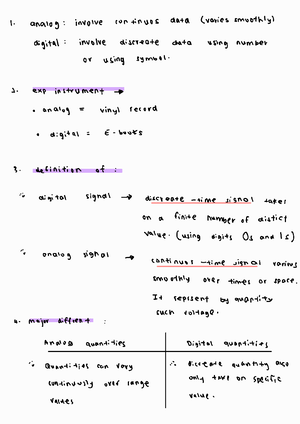 1. analog : involve continuos data (varies smoothly)
digital : involve discreate data using number
or using symbol.
2. exp instrument →
• analog = vinyl record
• digital = E-books
3. definition of :
∵ digital signal → discreate -time signal takes
on a finite number of distict
value. (using digits 0s and 1s)
∵ analog signal → continuos -time signal varies
smoothly over times or space.
It repisent by quantity
such voltage.
4. major differet :
Analog quantities Digital quantities
∵ Quantities can vary ∴ discreate quantity also
continuously over range only take on specific
values value.